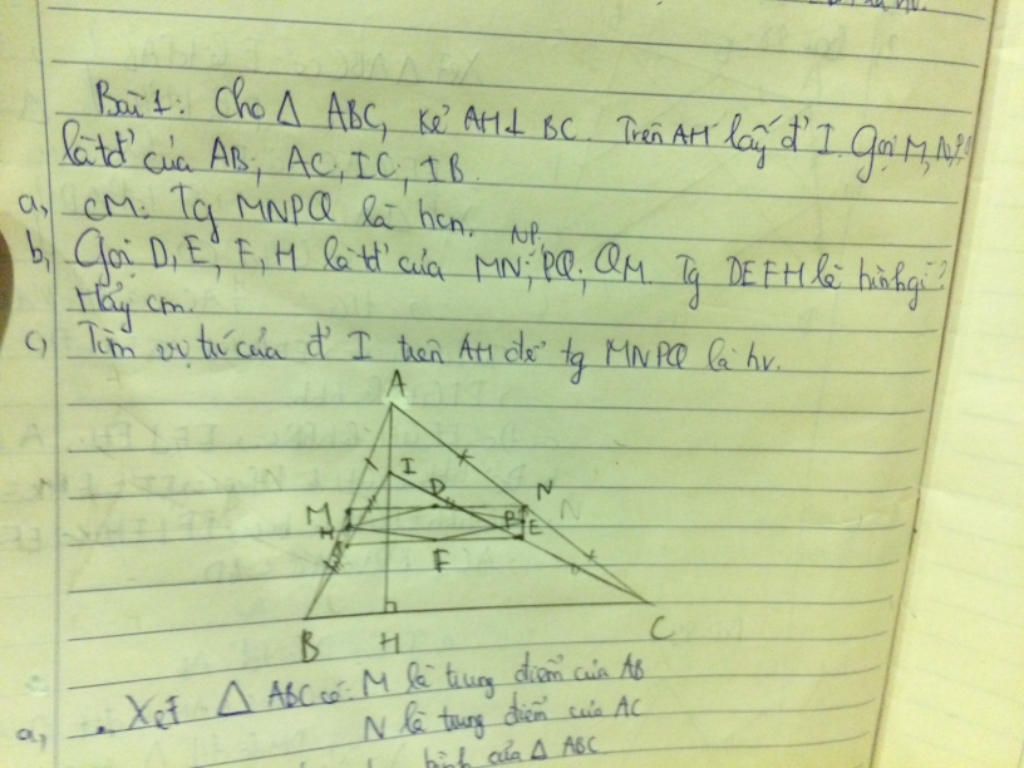 Bài 1: Cho Δ ABC, kẻ AH⊥ BC. Trên AH lấy đ' I. Gọi M, N, P, Q
là tđ' của AB, AC, IC, IB.
a, CM: Tg MNPQ là hcn.
NP,
b, Gọi D, E, F, H là tđ' của MN, PQ, QM. Tg DEFH là hình gì?
Hãy cm.
c, Tìm vị trí của đ' I trên AH để tg MNPQ là hv.
A
I
D
N
M
N
H
P
E
Q
F
B
H
C
a, Xét Δ ABC có: M là trung điểm của AB
N là trung điểm của AC
bình của Δ ABC